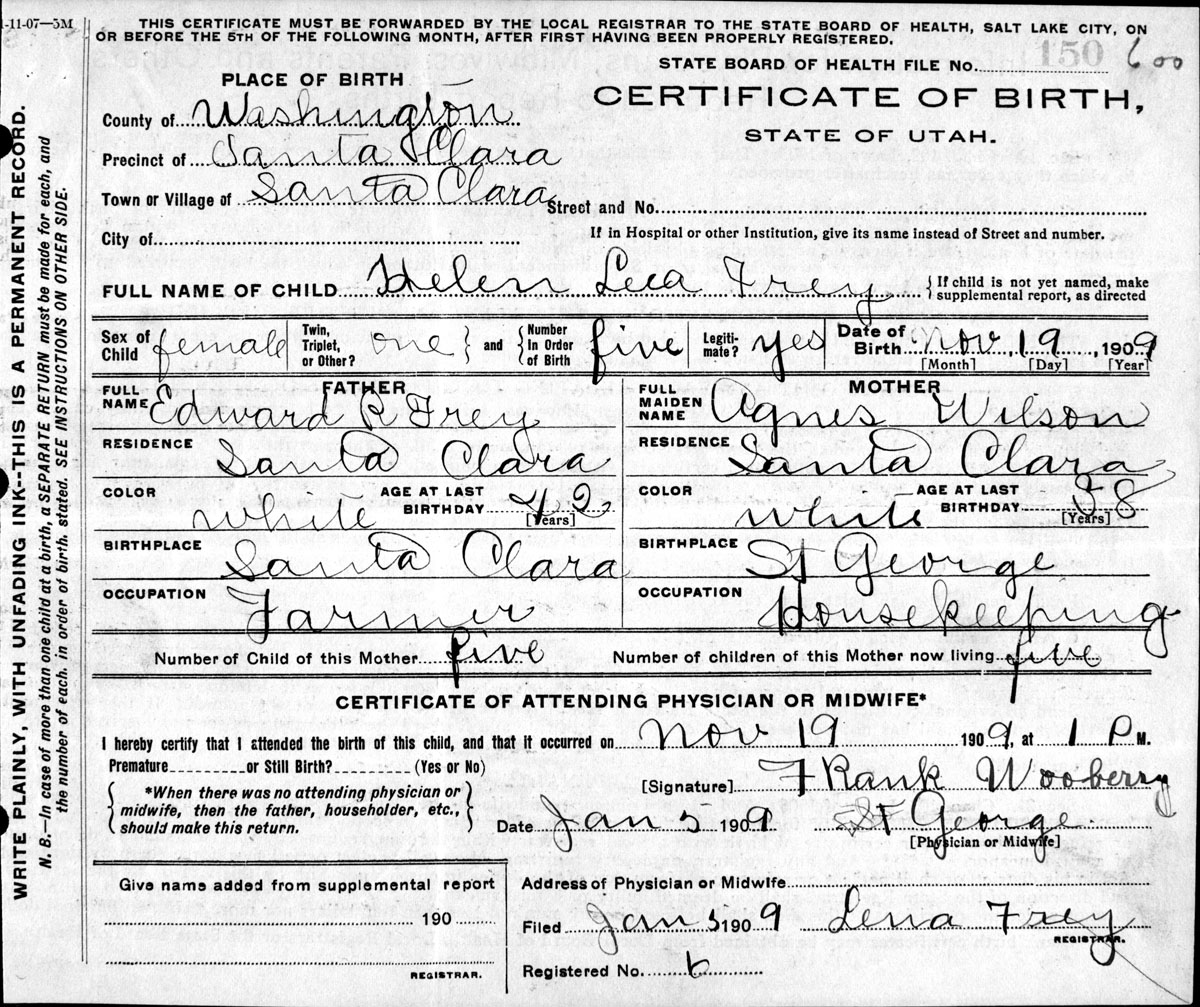 1-11-07—5M
THIS CERTIFICATE MUST BE FORWARDED BY THE LOCAL REGISTRAR TO THE STATE BOARD OF HEALTH, SALT LAKE CITY, ON
OR BEFORE THE 5TH OF THE FOLLOWING MONTH, AFTER FIRST HAVING BEEN PROPERLY REGISTERED.
STATE BOARD OF HEALTH FILE NO. 150 600
PLACE OF BIRTH
CERTIFICATE OF BIRTH,
STATE OF UTAH.
County of Washington
Precinct of Santa Clara
Town or Village of Santa Clara Street and No.
City of If in Hospital or other Institution, give its name instead of Street and number.
FULL NAME OF CHILD Helen Leca Frey { If child is not yet named, make supplemental report, as directed
Sex of Child female Twin, Triplet, or Other? one } and { Number In Order of Birth five Legiti-mate? yes Date of Birth Nov, 19, 1909
[Month] [Day] [Year]
FATHER MOTHER
FULL NAME Edward R Frey FULL MAIDEN NAME Agnes Wilson
RESIDENCE Santa Clara RESIDENCE Santa Clara
COLOR White AGE AT LAST BIRTHDAY 42 [Years] COLOR White AGE AT LAST BIRTHDAY 38 [Years]
BIRTHPLACE Santa Clara BIRTHPLACE St George
OCCUPATION Farmer OCCUPATION Housekeeping
Number of Child of this Mother five Number of children of this Mother now living five
CERTIFICATE OF ATTENDING PHYSICIAN OR MIDWIFE*
I hereby certify that I attended the birth of this child, and that it occurred on Nov 19 1909, at 1 P M.
Premature or Still Birth? (Yes or No)
[Signature] FRank Wooberry
{ *When there was no attending physician or
midwife, then the father, householder, etc.,
should make this return. }
Date Jan 5 1909 St George
[Physician or Midwife]
Give name added from supplemental report
190
REGISTRAR.
Address of Physician or Midwife
Filed Jan 5 1909 Lena Frey
REGISTRAR.
Registered No. 6
WRITE PLAINLY, WITH UNFADING INK--THIS IS A PERMANENT RECORD.
N. B.—In case of more than one child at a birth, a SEPARATE RETURN must be made for each, and
the number of each, in order of birth, stated. SEE INSTRUCTIONS ON OTHER SIDE.